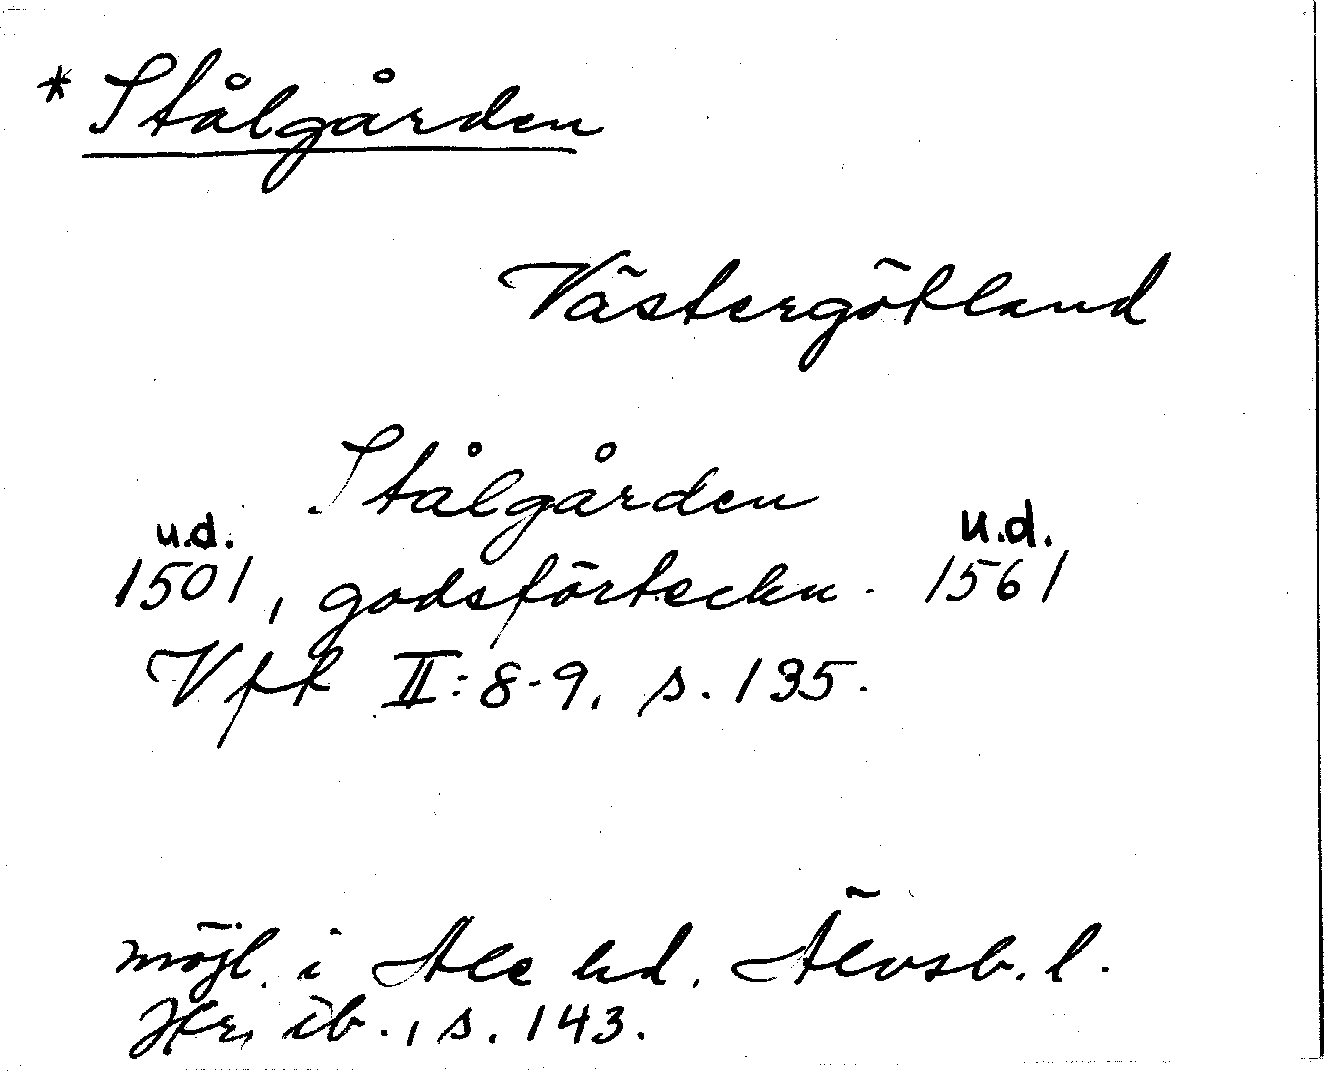 * Stålgården
Västergötland
Stålgården
u.d. u.d.
1501, godsförteckn. 1561
Vft II:8-9, s. 135.
möjl. i Ale hd, Älvsb. l.
Jfr, ib., s. 143.